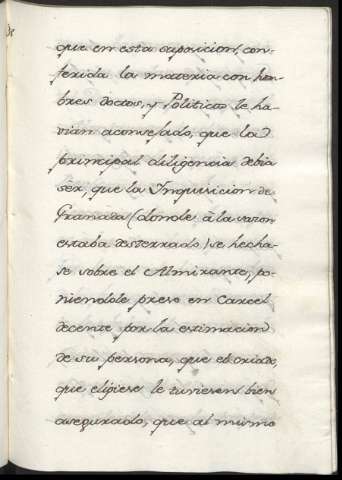 que en esta suposicion, con-
ferida la materia con hom-
bres doctos, y Politicos le ha-
vian aconsejado, que la
principal diligencia debia
sér, que la Inquisicion de
Granada (donde à la sazon
estaba desterrado) se hecha-
se sobre el Almirante, po-
niendole preso en Carcel
decente por la estimacion
de su persona, que el criado,
que eligiese le tuviesen bien
asegurado, que al mismo